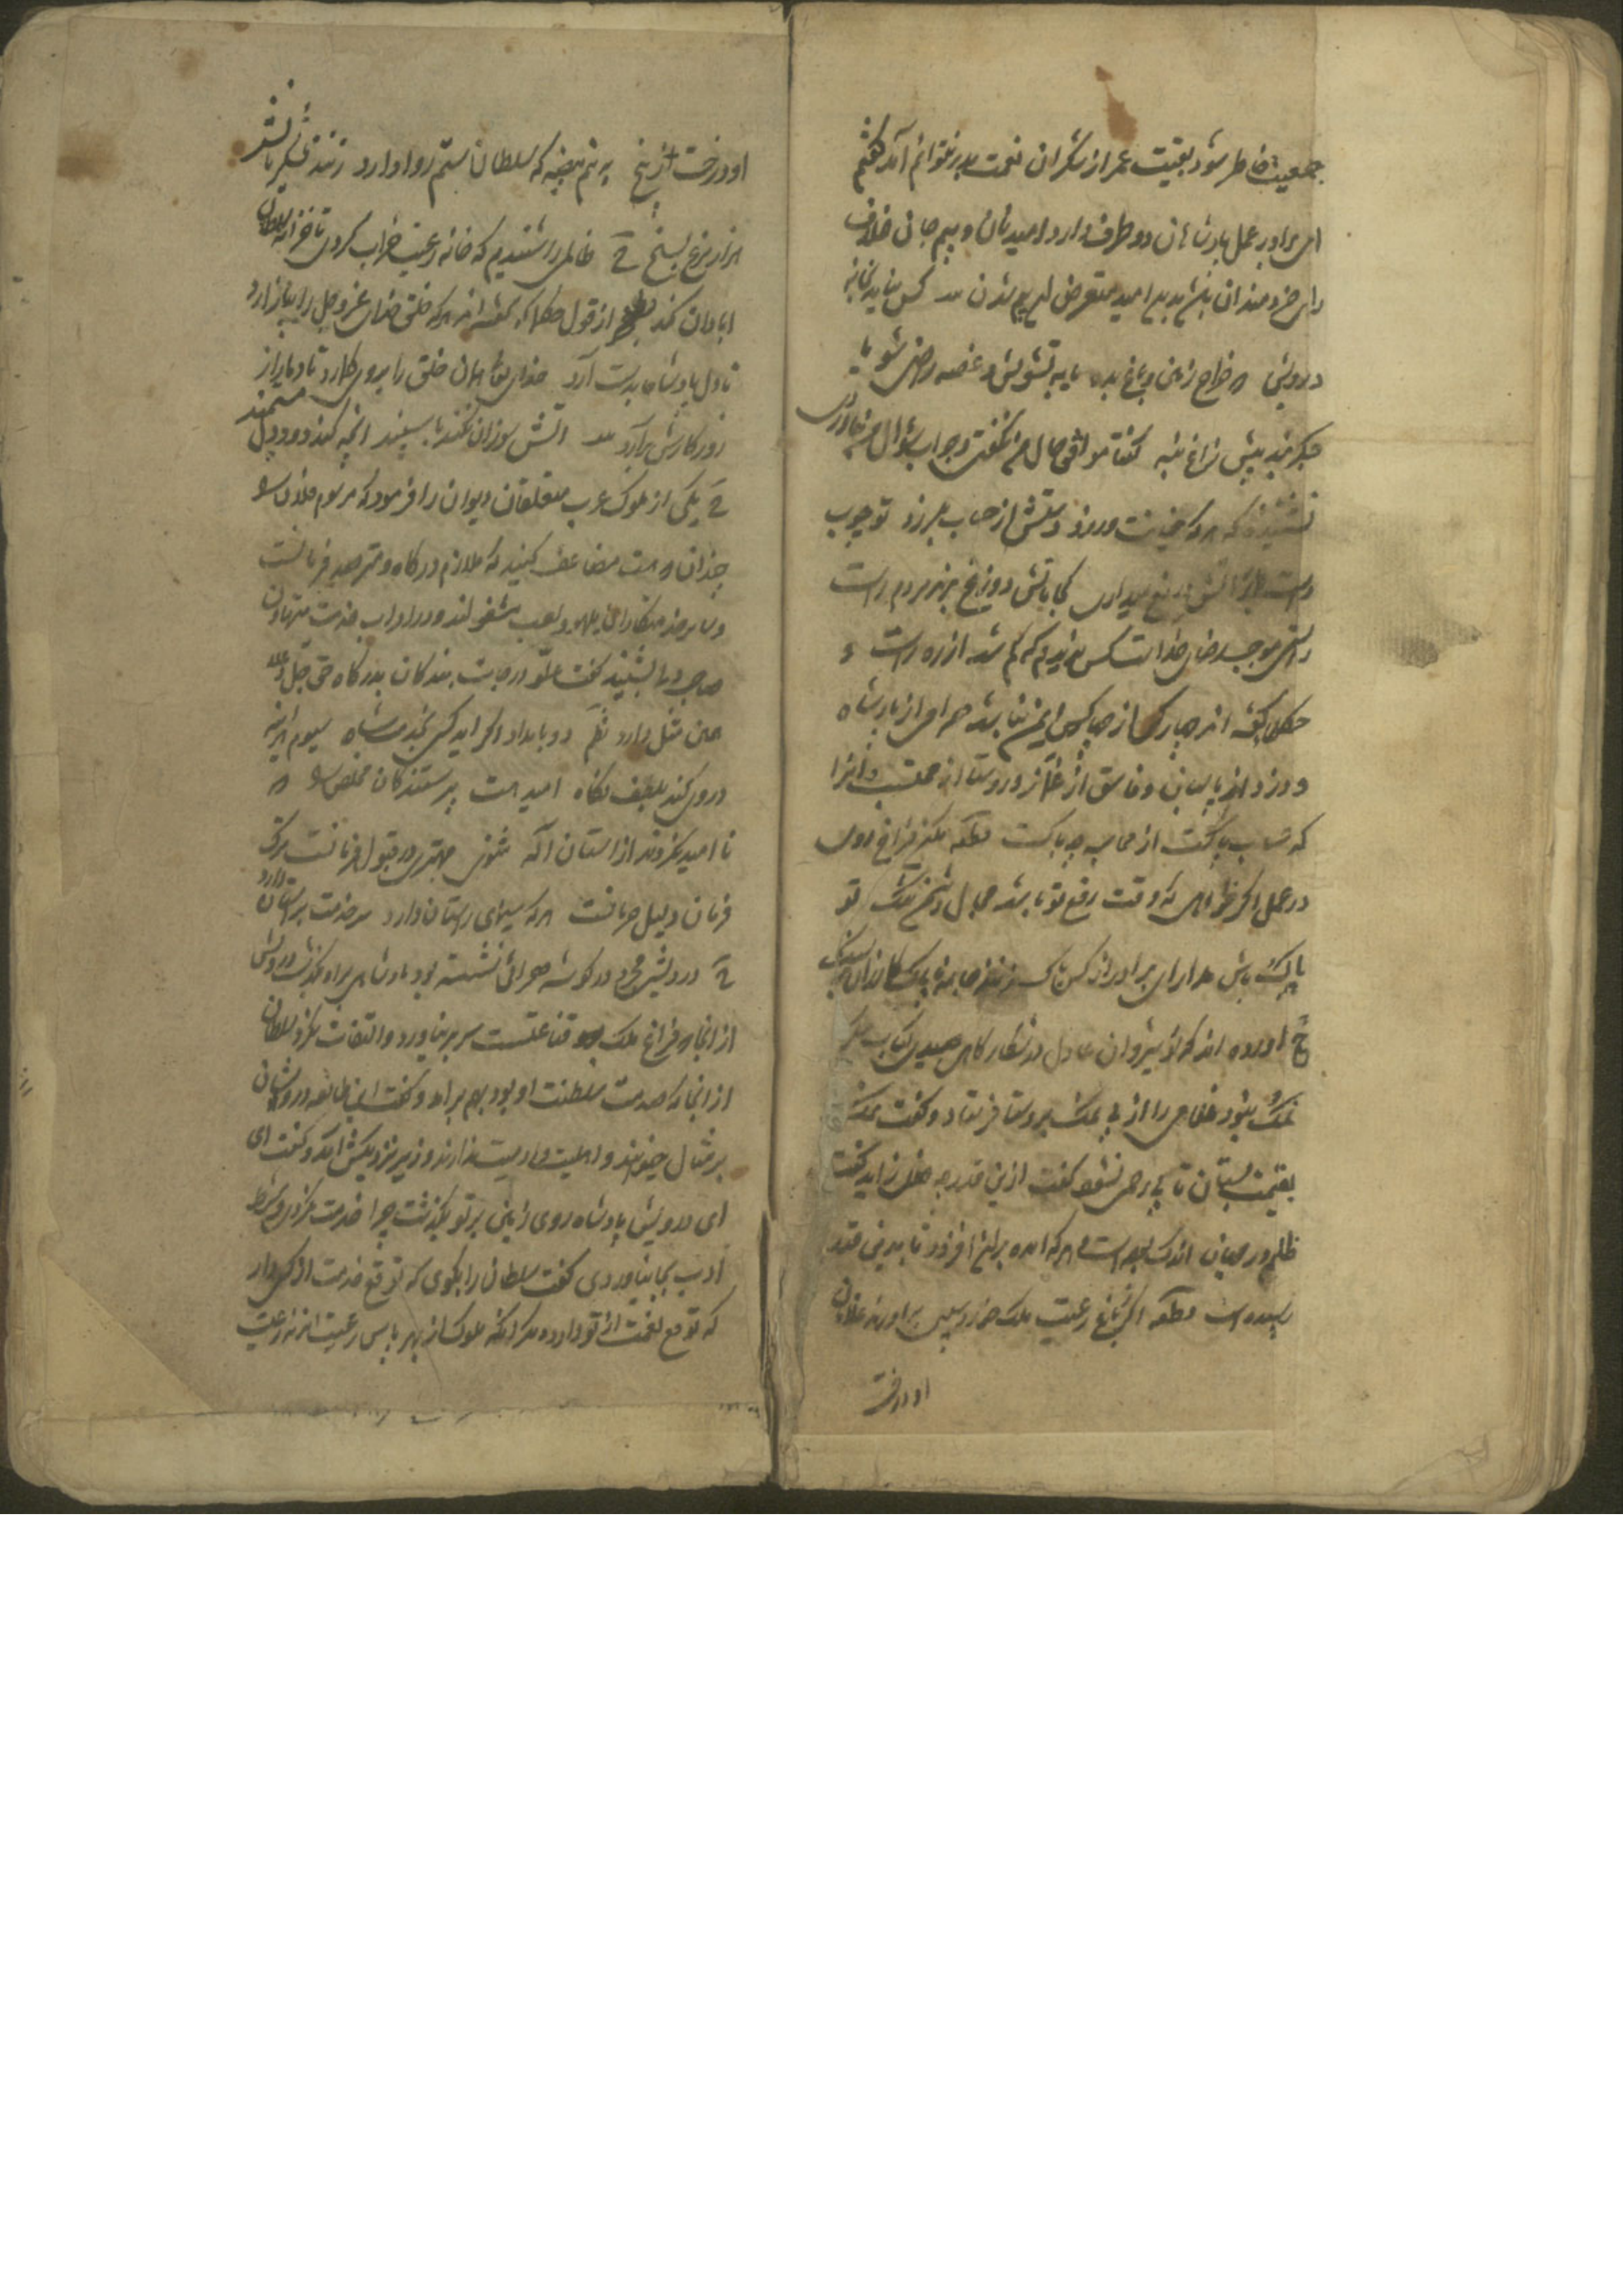 جمعیت خاطر شود بقیت عمر از شکران نعمت بدر نتوانم آمد گفتم
ای برادر عمل پادشاهان دو طرف دارد امید نان و بیم جان خلاف
رای خردمندان باشد بدین امید متعرض این بیم شدن کس نیاید بخانه
درویش که خراج زمین و باغ بده یا به تشویش و غصه راضی شو یا
جگر بند پیش زاغ بنه گفتا موافق حال من نگفتی و جواب سؤال من نیاوردی
نشنیده که هر که خیانت ورزد دستش از حساب بلرزد تو چوب
راست بر آتش دریغ میداری کجا باتش دوزخ برند مردم راست
راستی موجب رضای خداست کس ندیدم که گم شد از ره راست
حکما گفته اند چهار کس از چهار کس ایمن نباشد حرامی از پادشاه
و دزد از پاسبان و فاسق از غماز و روسپی از محتسب و آنرا
که حساب پاکست از محاسبه چه باکست قطعه مکن فراخ روی
در عمل اگر خواهی که وقت رفع تو باشد مجال دشمن تنگ تو
پاک باش مدار ای برادر از کس باک زنند جامه ناپاک گازران بر سنگ
آورده اند که نوشیروان عادل در شکار گاهی صیدی کباب میکرد
نمک نبود غلامی را از پی نمک بروستا فرستاد و گفت نمک
بقیمت بستان تا بی رحمی نشود گفت ازین قدر چه خلل زاید گفت
ظلم در جهان اندک بوده است هر که آمده بران افزود تا بدین قدر
رسیده است قطعه اگر ز باغ رعیت ملک خورد سیبی بر آورند غلامان
او درخت
او درخت از بیخ به نیم بیضه که سلطان ستم روا دارد زنند لشکریانش
هزار مرغ بسیخ ظالمی را شنیدم که خانه رعیت خراب کردی تا خزانه سلطان
ابادان کند از قول حکما که گفته اند هر که خلق خدای عز و جل را بیازارد
تا دل پادشاه بدست آرد خدای تعالی همان خلق را بر وی گمارد تا دمار از
روزگارش برآرد آتش سوزان نکند با سپند آنچه کند دود دل مستمند
یکی از ملوک عرب متعلقان دیوان را فرمود که مرسوم فلان را
چندان که هست مضاعف کنید که ملازم درگاه و مترصد فرمانست
و سایر خدمتکاران بلهو و لعب مشغولند و در ادای خدمت متهاون
صاحبدلی بشنید گفت علو درجات بندگان بدرگاه حق جل و علا
همین مثل دارد نظم دو بامداد اگر آید کسی بخدمت شاه سیوم هر آینه
در وی کند بلطف نگاه امید هست پرستندگان مخلص را که
نا امید نگردند از آستان اله مثنوی مهتری در قبول فرمانست ترک
فرمان دلیل حرمانست هر که سیمای راستان دارد سر خدمت بر آستان دارد
درویشی مجرد در گوشه صحرائی نشسته بود پادشاهی بر او بگذشت درویش
از انجا که فراغ ملک قناعتست سر بر نیاورد و التفات نکرد سلطان
از انجا که صدمت سلطنت او بود بهم برآمد و گفت این طایفه درویشان
بر مثال حیوانند و اهلیت و ادمیت ندارند وزیر نزدیکش آمد و گفت ای
ای درویش پادشاه روی زمین بر تو بگذشت چرا خدمت نکردی و شرط
ادب بجا نیاوردی گفت سلطان را بگوی که توقع خدمت از کسی دار
که توقع نعمت از تو دارد دیگر آنکه ملوک از بهر پاس رعیت اند نه رعیت